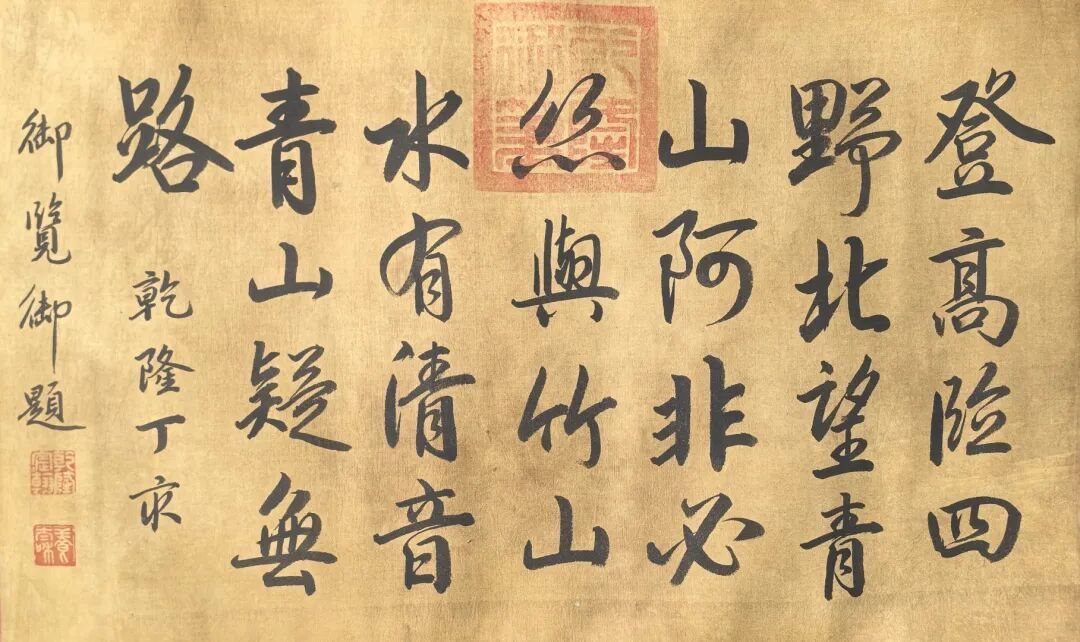 登高临四
野北望青
山阿非必
丝與竹山
水有清音
青山疑無
路
乾隆丁亥
御覽御題